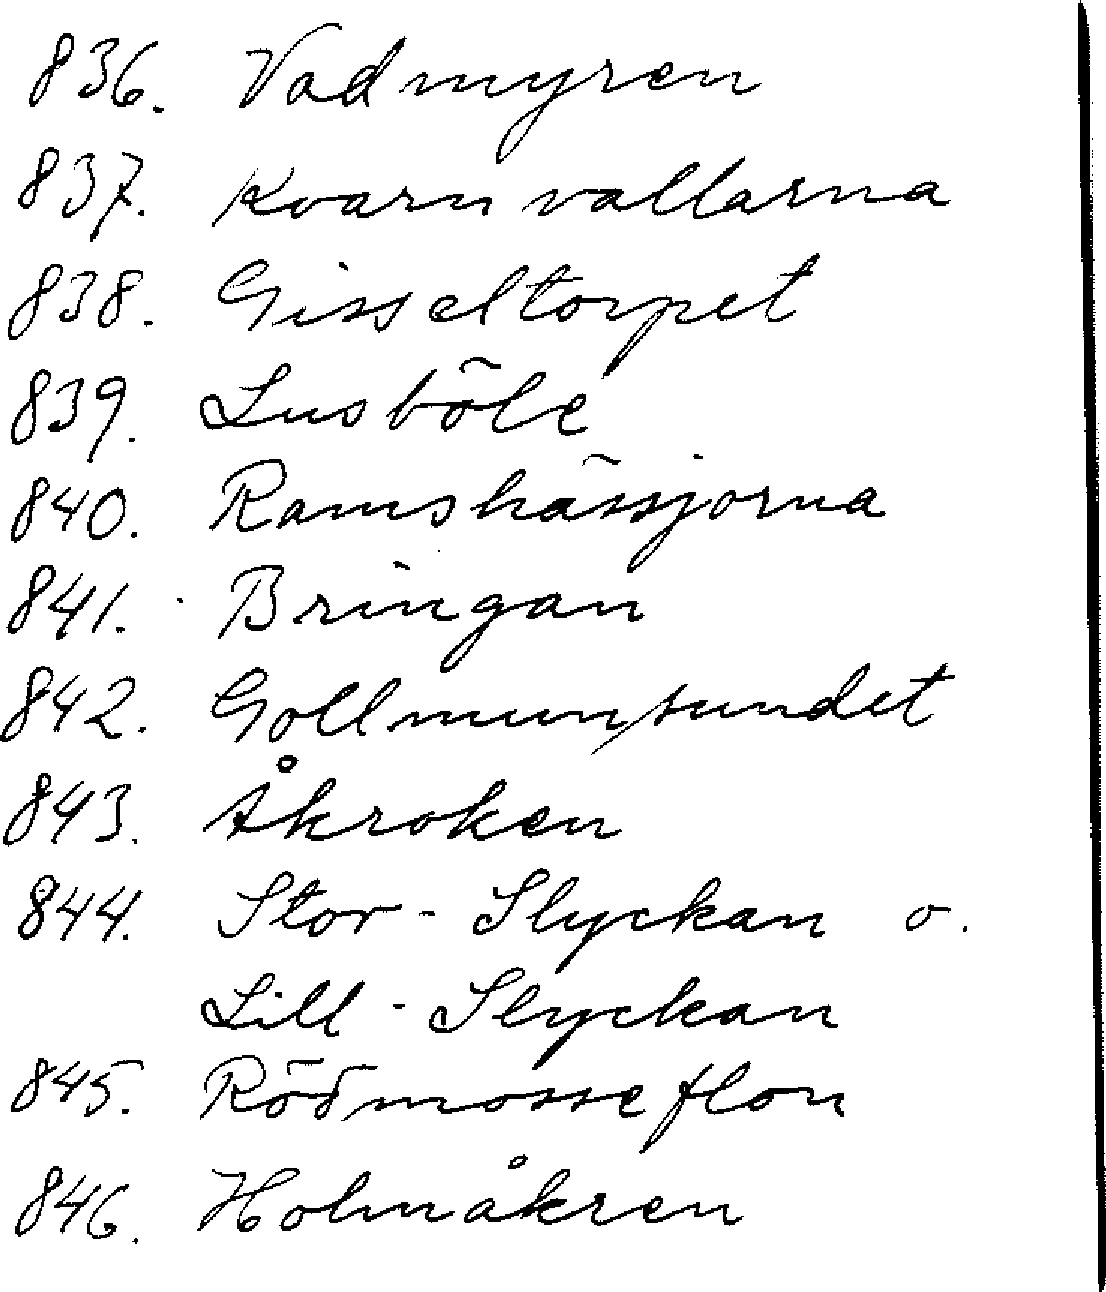 836. Vadmyren
837. Kvarnvallarna
838. Gisseltorpet
839. Lusböle
840. Ramshässjorna
841. Bringan
842. Gollmunsundet
843. Åkroken
844. Stor-Slyckan o.
Lill-Slyckan
845. Rödmosseflon
846. Holmåkren